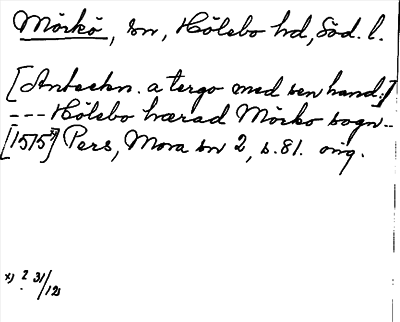 Mörkö, sn, Hölebo hd, Söd. l.
[Anteckn. a tergo med sen hand:]
--- Hölebo hærad Mörko sogn --
[1575 x)] Pers, Mora sn 2, s. 81. orig.
x) ? 31/12